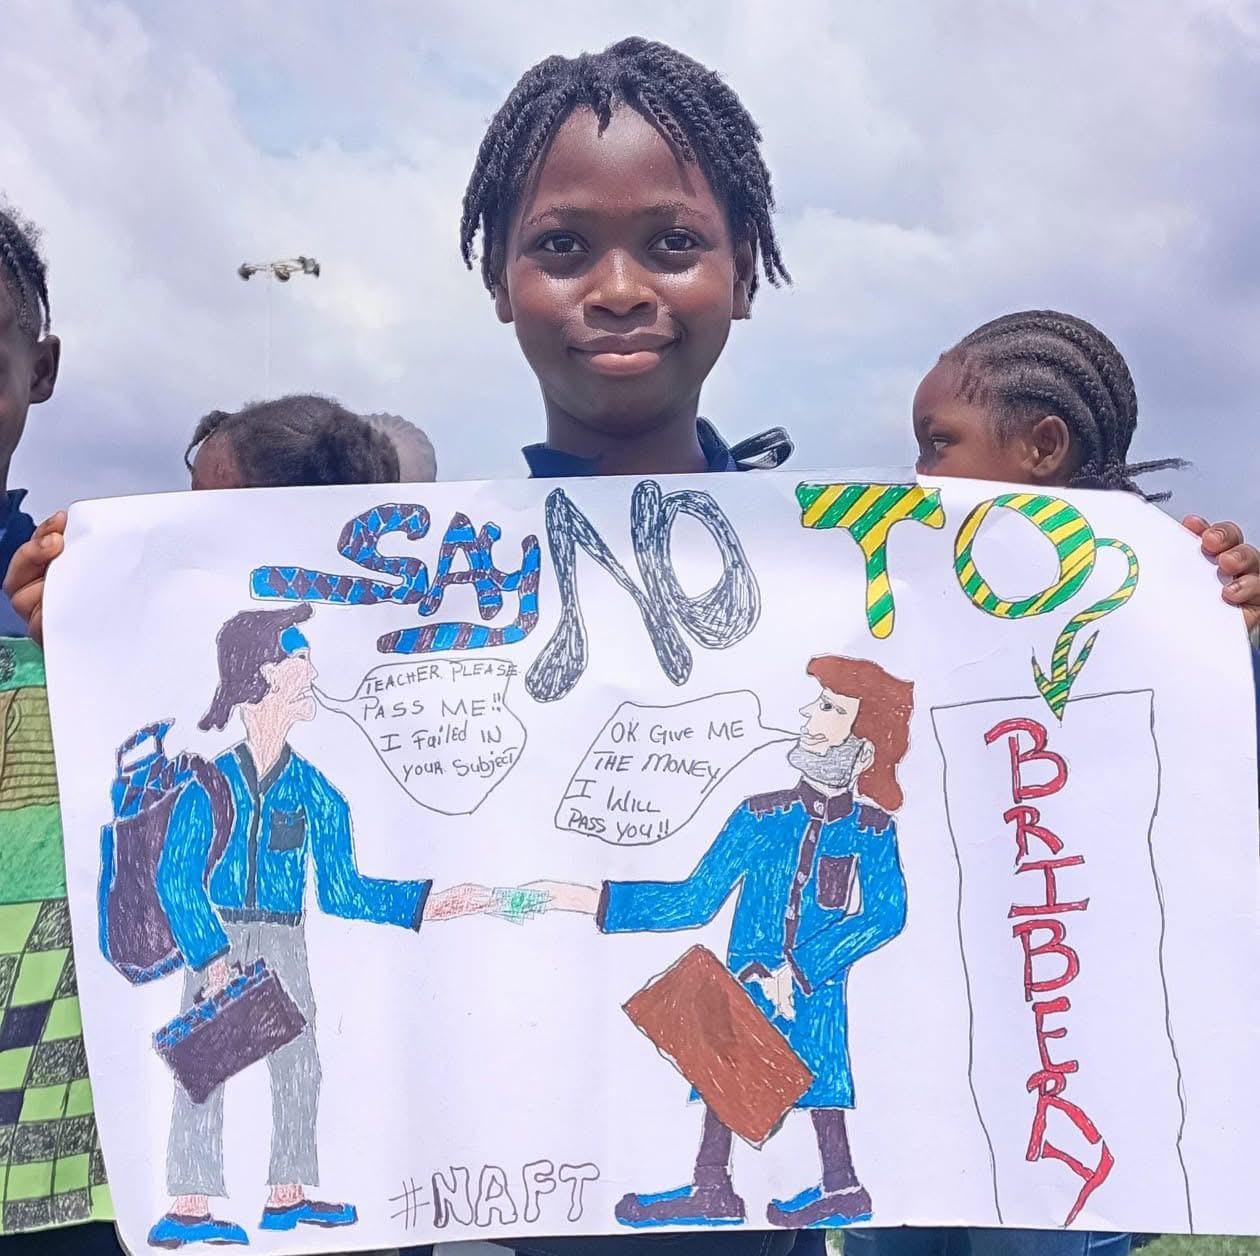 SAY NO TO
BRIBERY
TEACHER PLEASE
PASS ME!!
I Failed IN
YOUR Subject
OK Give ME
THE MONEY
I WILL
PASS YOU!!
#NAFT